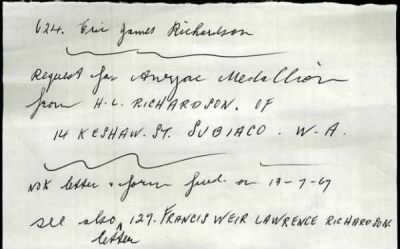 624. Eric James Richardson
Request for Anzac Medallion
from H.L. RICHARDSON. OF
14 KESHAW. ST. SUBIACO. W.A.
NOK letter & form fwd. on 13-7-67
see also 127. FRANCIS WEIR LAWRENCE RICHARDSON
letter